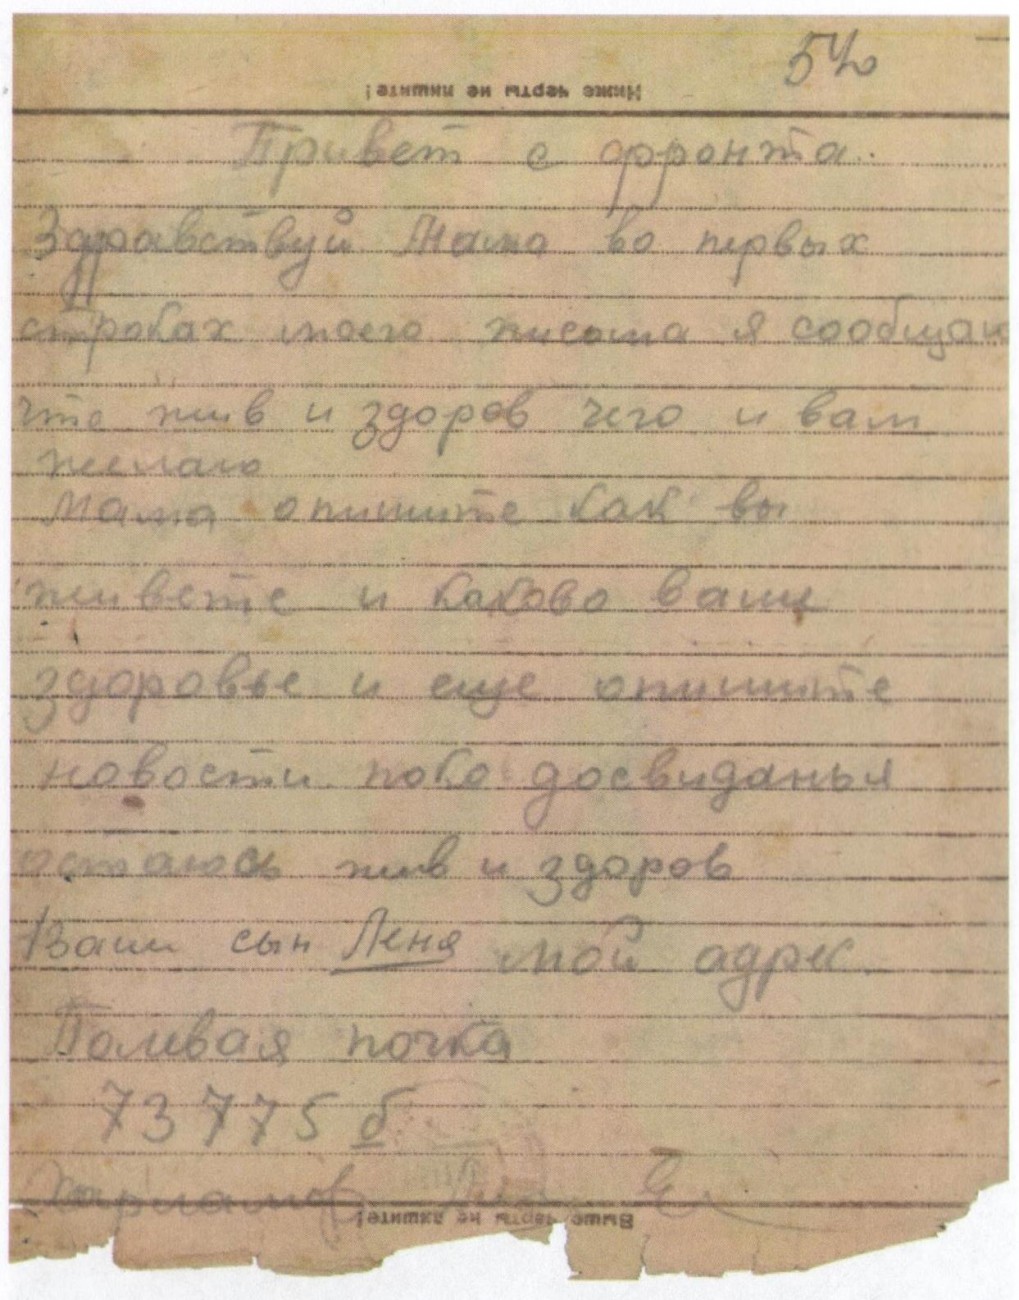 Ниже черты не пишите!
Привет с фронта.
Здравствуй Мама во первых
строках моего письма я сообщаю
что жив и здоров чего и вам
желаю
Мама опишите как вы
живете и каково ваше
здоровье и еще опишите
новости. пока досвиданья
остаюсь жив и здоров
Ваш сын Леня мой адрес.
Полевая почка
73775 б
Харламов
Выше черты не пишите!